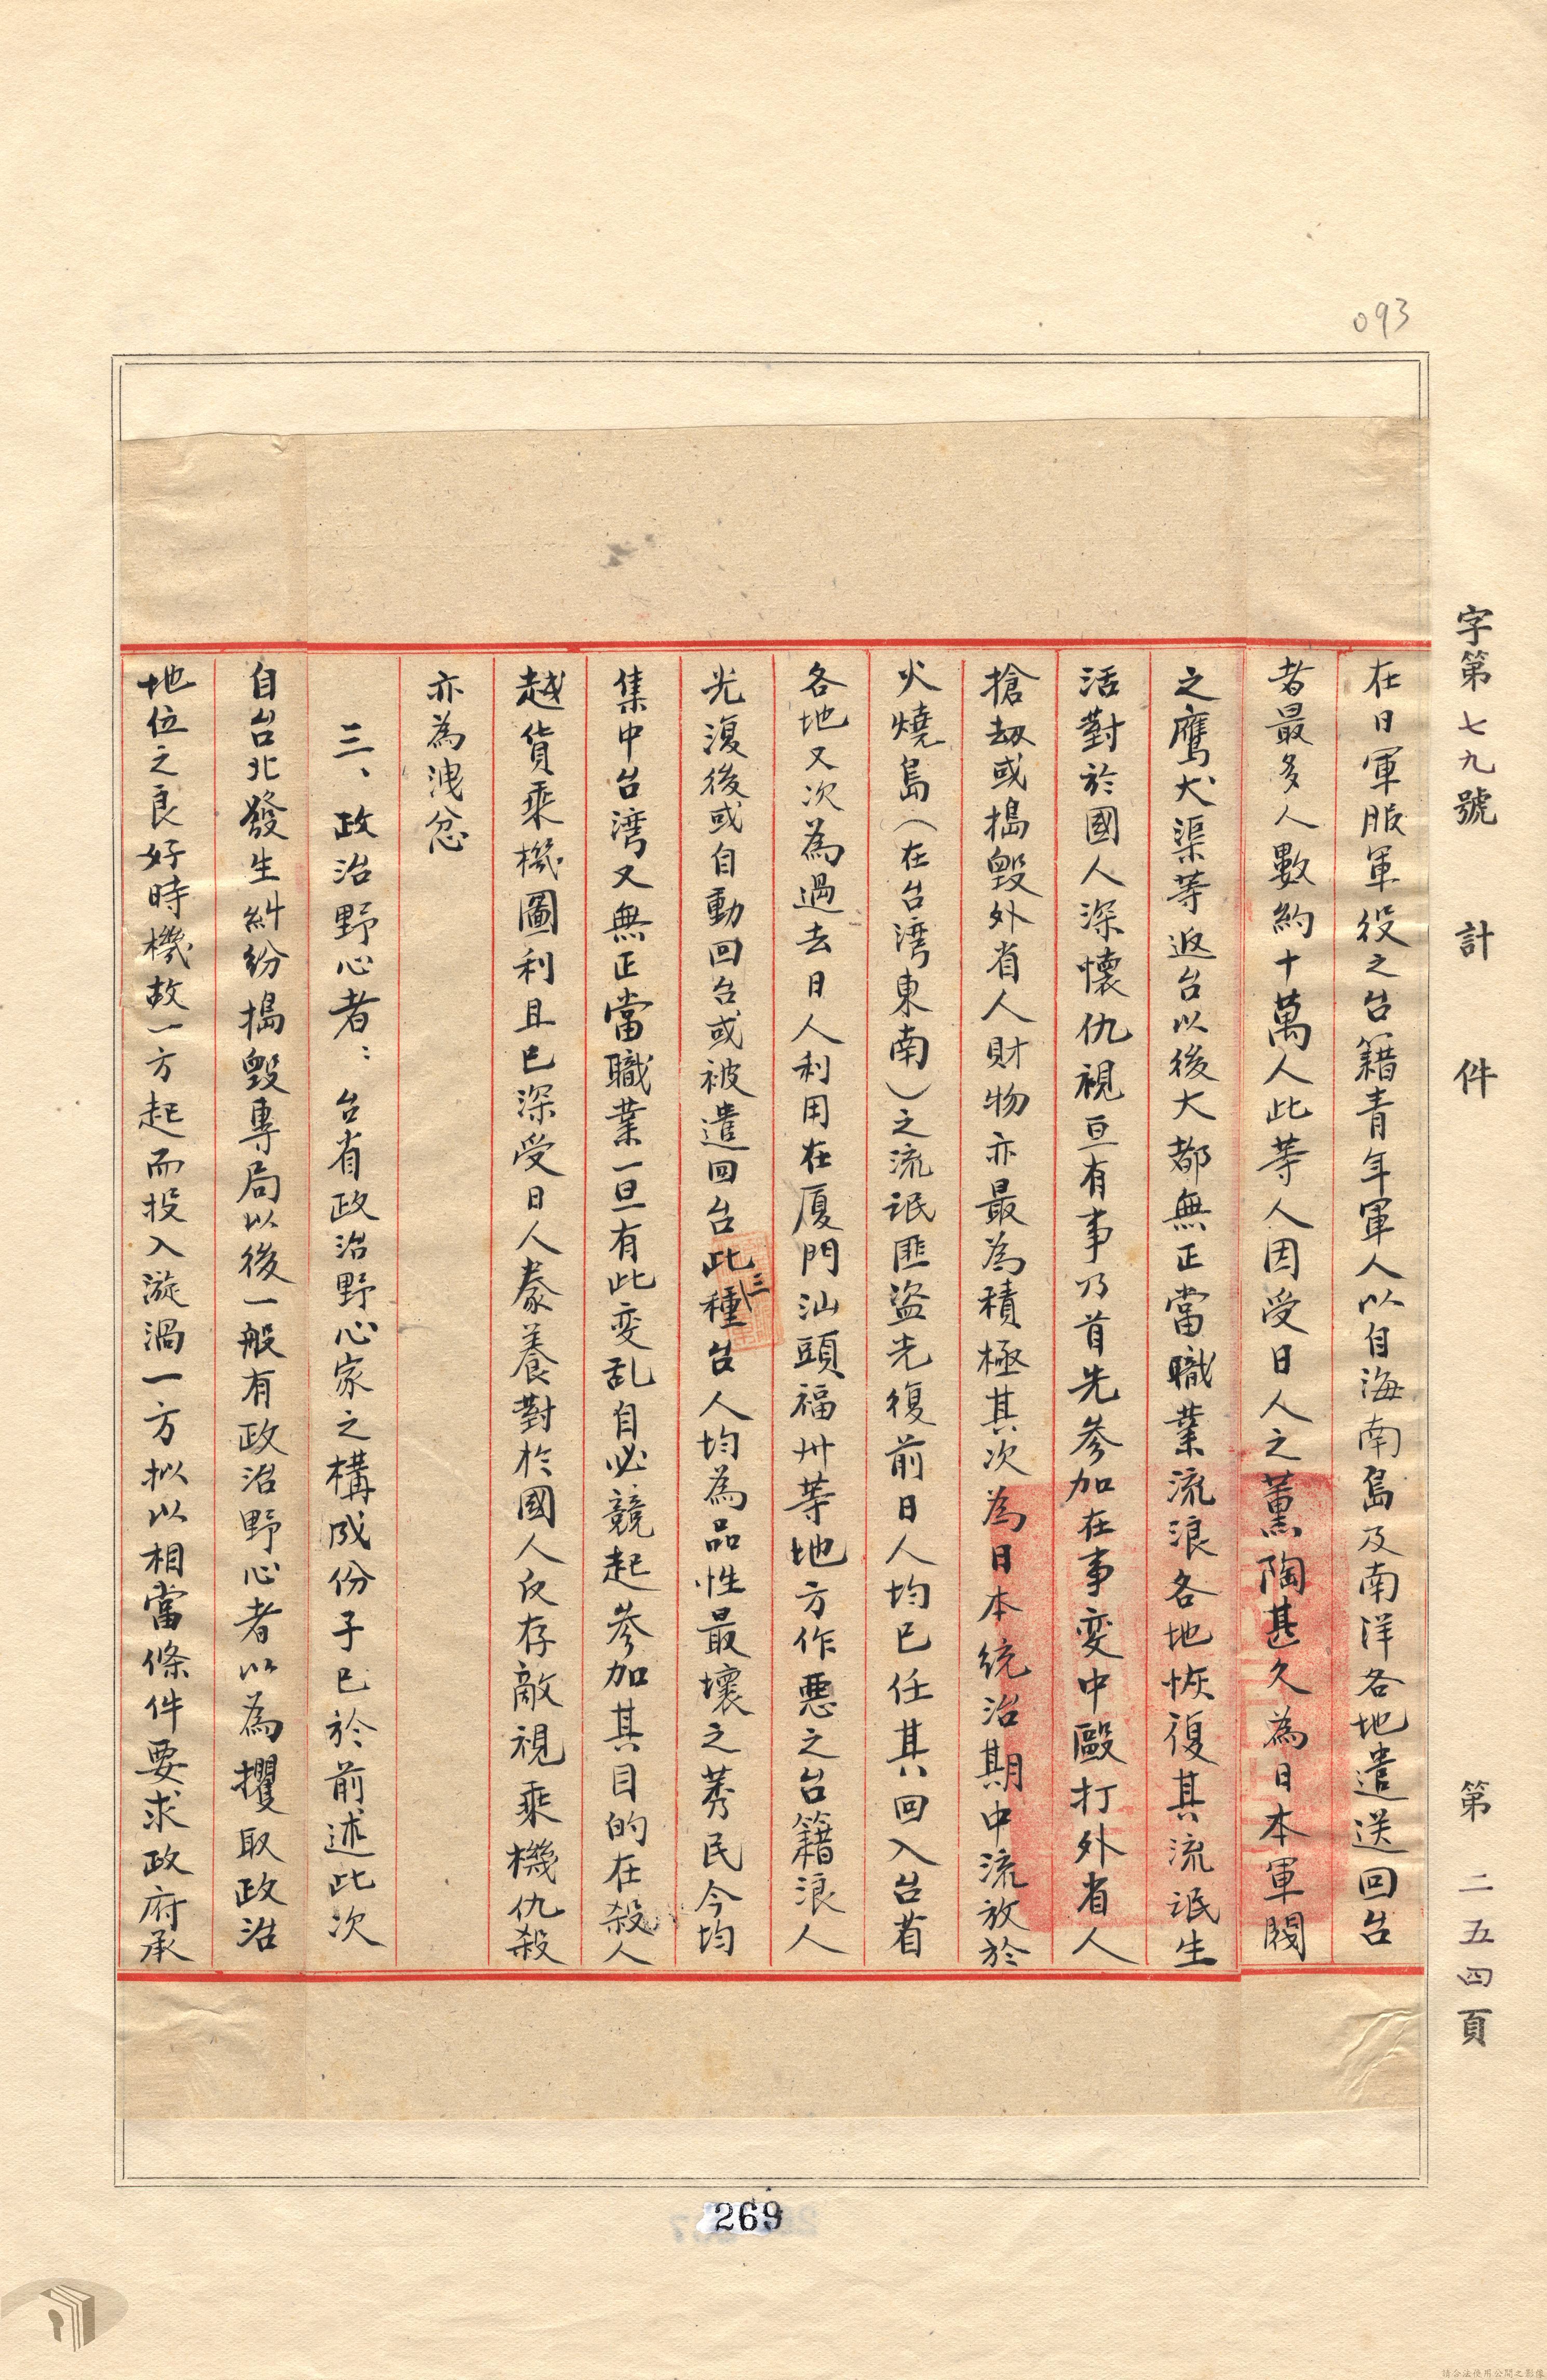 093
字第七九號 計 件 第二五四頁
在日軍服軍役之台籍青年軍人以自海南島及南洋各地遣送回台
者最多人數約十萬人此等人因受日人之薰陶甚久為日本軍閥
之鷹犬渠等返台以後大都無正當職業流浪各地恢復其流氓生
活對於國人深懷仇視亘有事乃首先參加在事变中毆打外省人
搶劫或搗毀外省人財物亦最為積極其次為日本統治期中流放於
火燒島(在台湾東南)之流氓匪盜光復前日人均已任其回入台省
各地又次為過去日人利用在廈門汕頭福州等地方作惡之台籍浪人
光復後或自動回台或被遣回台此三種台人均為品性最壞之莠民今均
集中台湾又無正當職業一旦有此变乱自必競起參加其目的在殺人
越貨乘機圖利且已深受日人豢養對於國人仄存敵視乘機仇殺
亦為洩忿
三、政治野心者:台省政治野心家之構成份子已於前述此次
自台北發生糾紛搗毀專局以後一般有政治野心者以為攫取政治
地位之良好時機故一方起而投入漩渦一方拟以相當條件要求政府承
269
請合法使用公開之影像